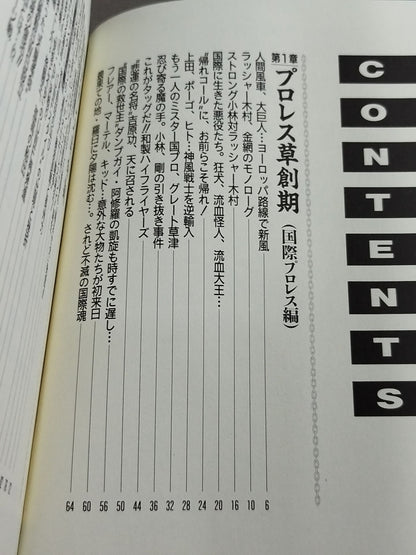 CONTENTS
第1章 プロレス草創期（国際プロレス編）
人間風車、大巨人…ヨーロッパ路線で新風 6
ラッシャー木村、金網のモノローグ 10
ストロング小林対ラッシャー木村 16
国際に生きた悪役たち。狂犬、流血怪人、流血大王… 20
“帰れコール”に、お前らこそ帰れ! 24
上田、ポーゴ、ヒト…神風戦士を逆輸入 28
もう一人のミスター国プロ、グレート草津 32
忍び寄る魔の手。小林、剛の引き抜き事件 36
これがタッグだ!!和製ハイフライヤーズ 44
“悲運の名将”吉原功、天に召される 50
“国際の救世主”ダンプガイ・阿修羅の凱旋も時すでに遅し… 56
フレアー、マーテル、キッド…意外な大物たちが初来日 60
最果ての地・羅臼に夕陽は沈む…。されど不滅の国際魂 64